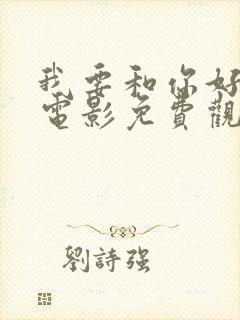 我要和你好
電影免費觀
劉詩強